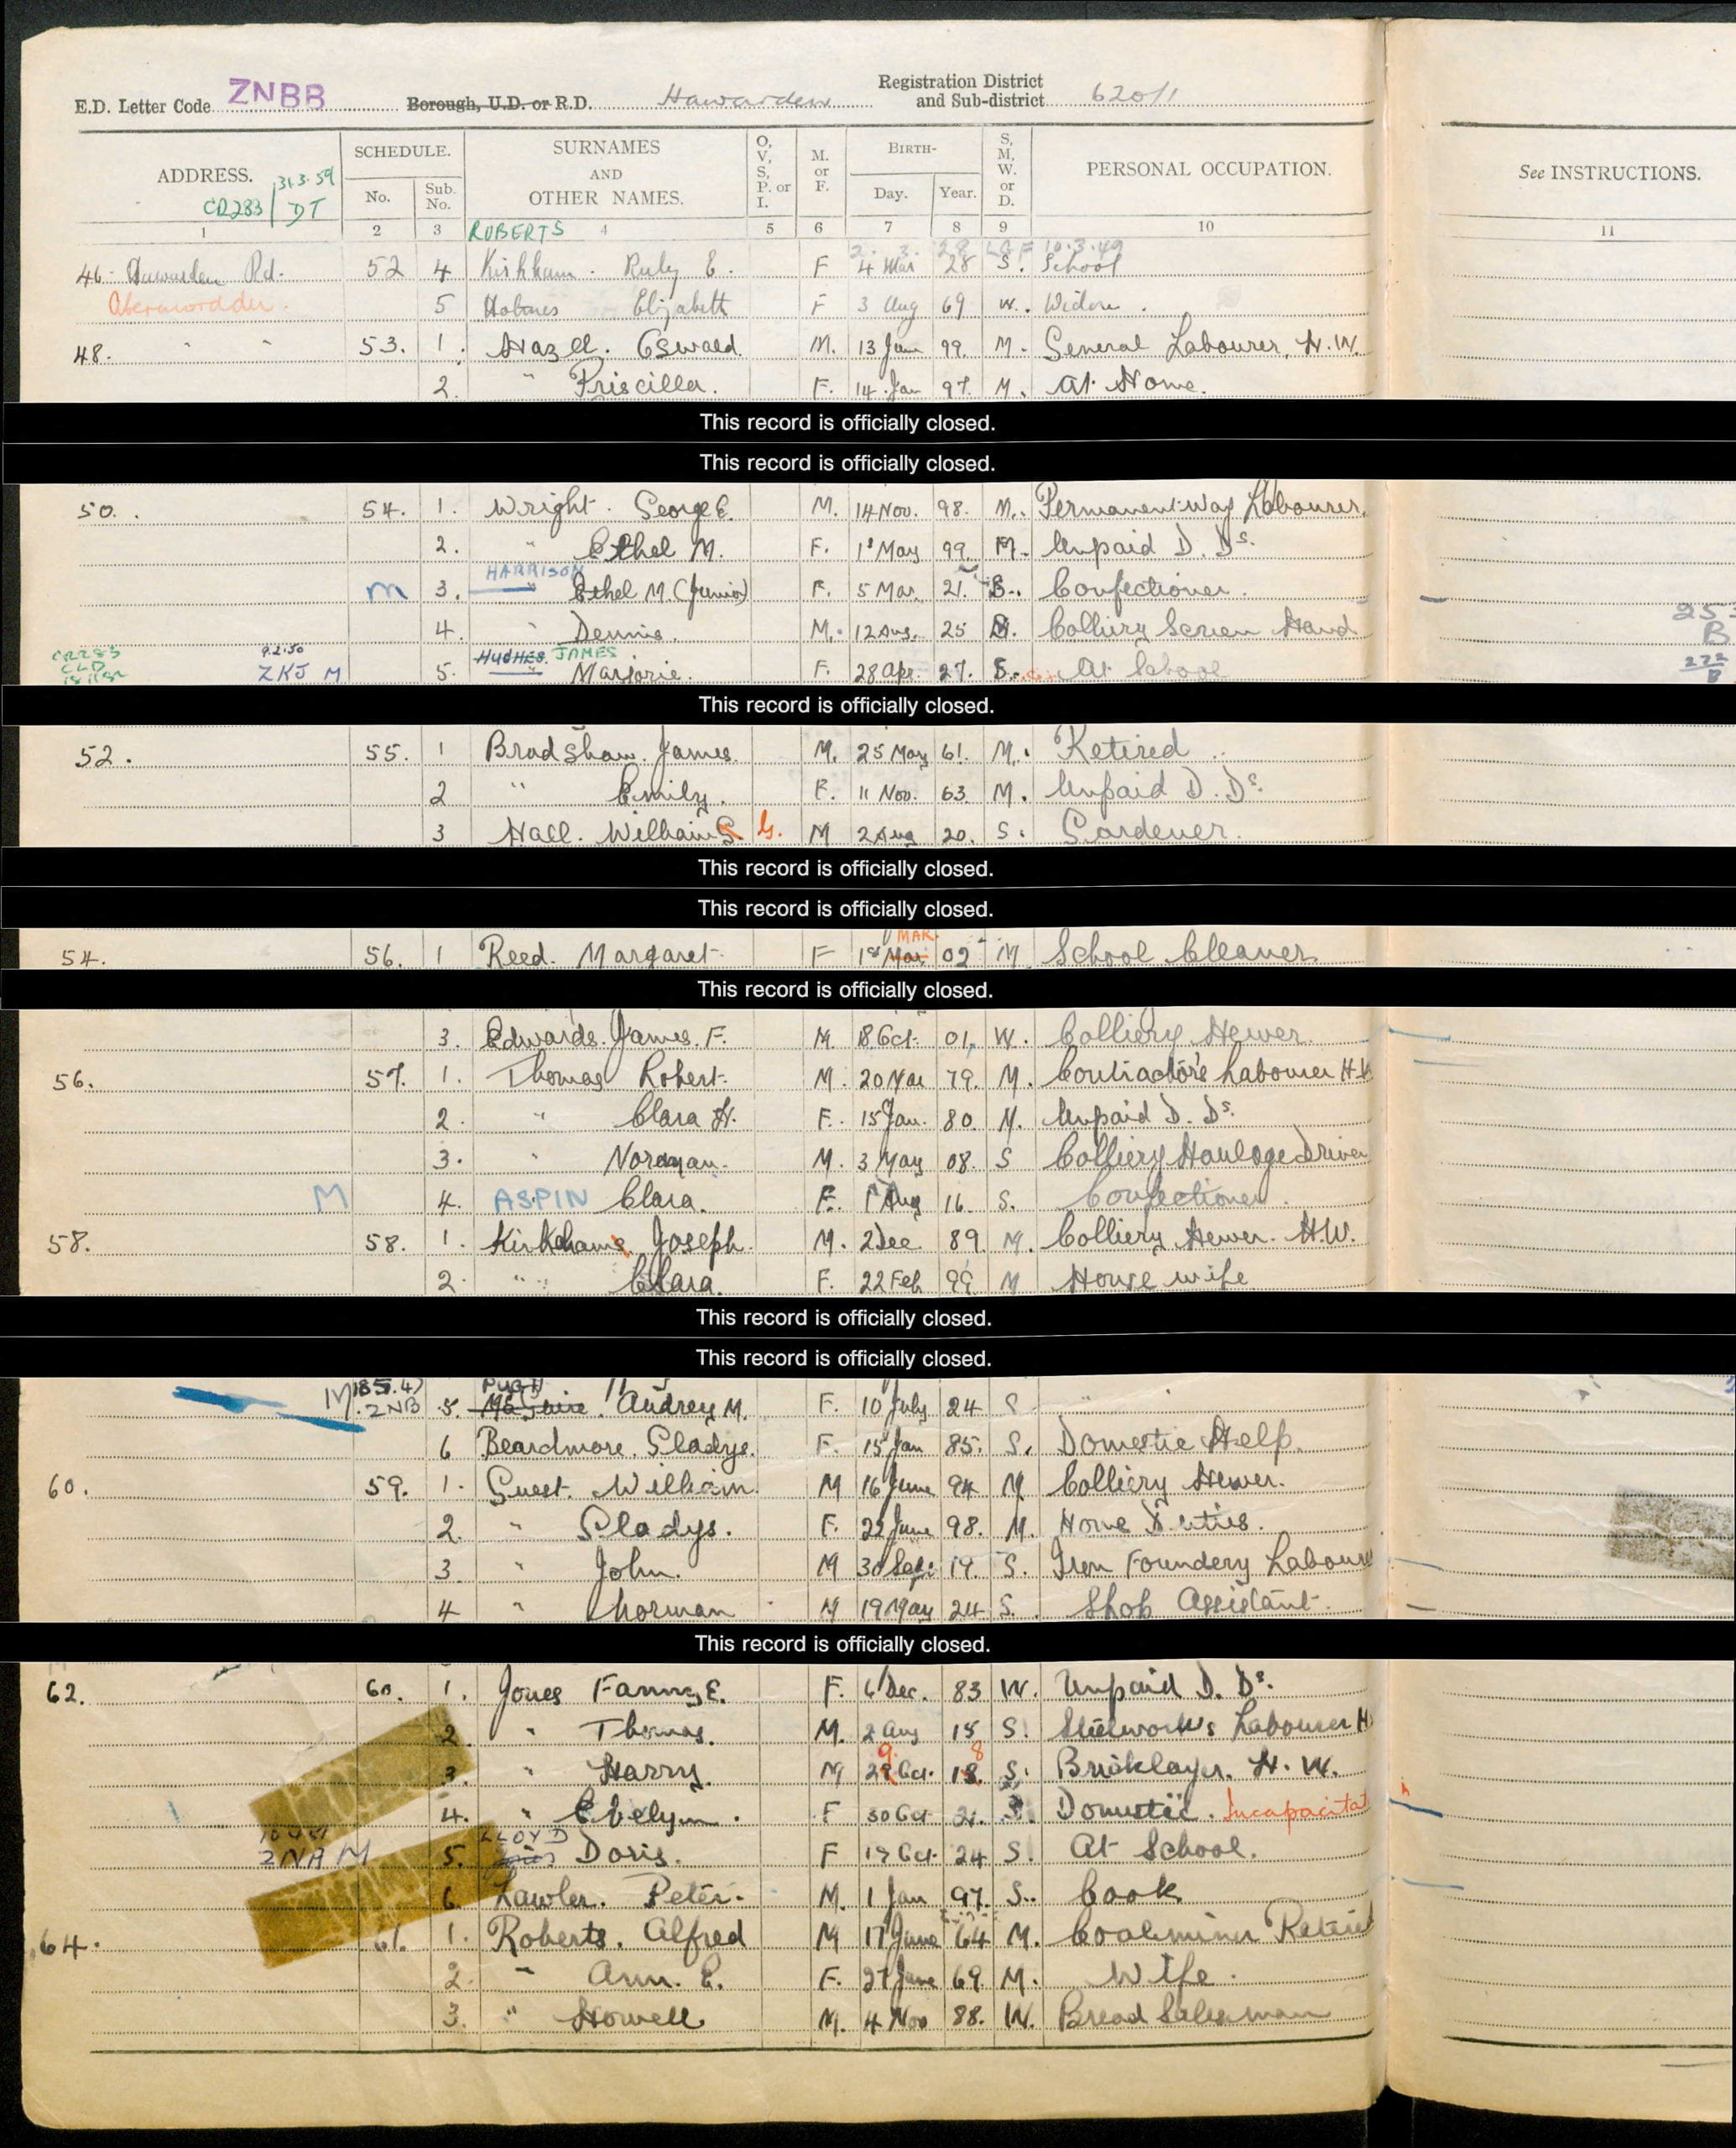 E.D. Letter Code ZNBB Borough, U.D. or R.D. Hawarden Registration District and Sub-district 620/1
ADDRESS. SCHEDULE. SURNAMES AND OTHER NAMES. O, V, S, P. or I. M. or F. BIRTH- S, M, W. or D. PERSONAL OCCUPATION. See INSTRUCTIONS.
31.3.59 No. Sub. No. Day. Year.
CR283 DT
1 2 3 ROBERTS 4 5 6 7 8 9 10 11
2. 3. 28 10.3.49
46. Hawarden Rd. 52 4 Kirkham. Ruby E. F 4 Mar 28 S. School
Abermorddu. 5 Holmes Elizabeth F 3 Aug 69 W. Widow.
48. " " 53. 1. Hazell. Oswald. M. 13 Jan 99. M. General Labourer. H.W.
2. " Priscilla. F. 14 Jan 97. M. At Home.
This record is officially closed.
This record is officially closed.
50. 54. 1. Wright. George E. M. 14 Nov. 98. M. Permanent Way Labourer.
2. " Ethel M. F. 1st May 99. M. Unpaid D. Ds.
HARRISON
M 3. Ethel M. (Junior) F. 5 Mar. 21. S. Confectioner.
4. " Dennis. M. 12 Aug. 25 S. Colliery Screen Hand
HUGHES. JAMES
CR283 9.2.50 ZKJ M 5. Marjorie. F. 28 Apr. 27. S. At School
This record is officially closed.
52. 55. 1 Bradshaw. James. M. 25 May 61. M. Retired
2 " Emily. F. 11 Nov. 63. M. Unpaid D. Ds.
3 Hall. William G. G. M 2 Aug 20. S. Gardener.
This record is officially closed.
This record is officially closed.
MAR.
54. 56. 1 Reed. Margaret F 1st Mar 02 M School Cleaner
This record is officially closed.
3. Edwards. James. F. M. 18 Oct. 01. W. Colliery Hewer.
56. 57. 1. Thomas Robert. M. 20 Mar 79. M. Contractor's Labourer H.W
2. " Clara H. F. 15 Jan. 80. M. Unpaid D. Ds.
3. " Norman. M. 3 May 08. S Colliery Haulage Driver
M 4. ASPIN Clara. F. 1 Aug 16. S. Confectioner.
58. 58. 1. Kirkham Joseph. M. 2 Dec 89. M. Colliery Hewer. H.W.
2. " Clara. F. 22 Feb 99 M House wife
This record is officially closed.
This record is officially closed.
PUGH
M ZNB 5. McGuire. Audrey M. F. 10 July 24 S "
6 Beardmore. Gladys. F. 15 Jan 85. S. Domestic Help.
60. 59. 1. Guest. William. M 16 June 94 M Colliery Hewer.
2. " Gladys. F. 22 June 98. M. Home Duties.
3. " John. M 30 Sep. 19. S. Iron Foundery Labourer
4 " Norman M 19 May 24 S. Shop Assistant.
This record is officially closed.
62. 60. 1. Jones Fanny E. F. 6 Dec. 83 W. Unpaid D. Ds.
2. " Thomas. M. 2 Aug 15 S. Steelworks Labourer H
9 8
3. " Harry. M 29 Oct. 18. S. Bricklayer. H. W.
4. " Evelyn. F 30 Oct 21. S. Domestic. Incapacitat
LLOYD
ZNA M 5. Doris. F 17 Oct. 24 S. At School.
6 Lawler. Peter. M. 1 Jan 97. S. Cook
64. 61. 1. Roberts. Alfred M 17 June 64 M. Coalminer Retired
2. " Ann. E. F. 27 June 69. M. Wife.
3. " Howell M. 4 Nov 88. W. Bread Salesman